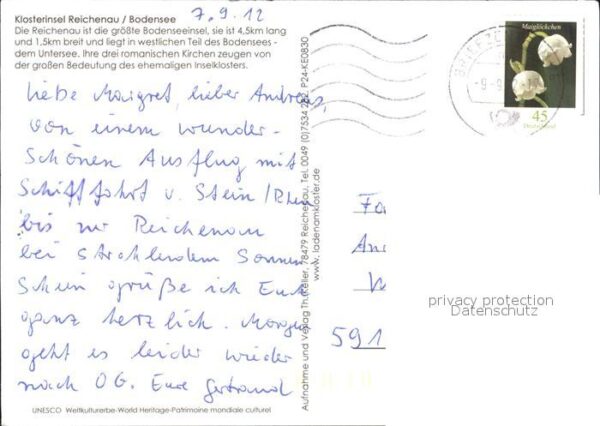 Klosterinsel Reichenau / Bodensee
7.9.12
Die Reichenau ist die größte Bodenseeinsel, sie ist 4,5km lang
und 1,5km breit und liegt in westlichen Teil des Bodensees -
dem Untersee. Ihre drei romanischen Kirchen zeugen von
der großen Bedeutung des ehemaligen Inselklosters.
Liebe Margret, lieber Andreas,
von einem wunder-
schönen Ausflug mit
Schifffahrt v. Stein/Rhein
bis zur Reichenau
bei strahlendem Sonnen
schein grüße ich Euch
ganz herzlich. Morgen
geht es leider wieder
nach OG. Eure Gertraud
UNESCO Weltkulturerbe-World Heritage-Patrimoine mondiale culturel
Aufnahme und Verlag Th. Keller, 78479 Reichenau, Tel. 0049 (0)7534 282, P24-KE0830
www.ladenamkloster.de
Maiglöckchen
45
Deutschland
BRIEFZE
Fa
An
591
privacy protection
Datenschutz